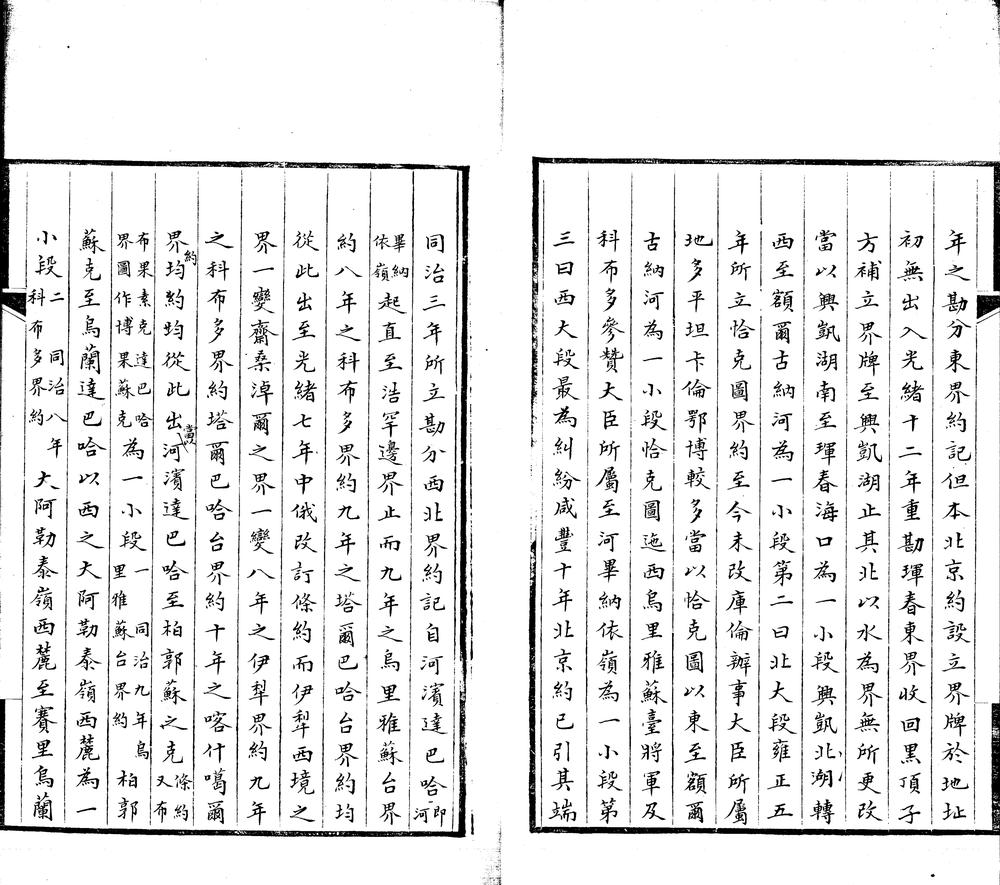 年之勘分東界約記但本北京約設立界牌於地址
初無出入光緒十二年重勘琿春東界收回黑頂子
方補立界牌至興凱湖止其北以水為界無所更改
當以興凱湖南至琿春海口為一小段興凱北湖轉
西至額爾古納河為一小段第二曰北大段雍正五
年所立恰克圖界約至今未改庫倫辦事大臣所屬
地多平坦卡倫鄂博較多當以恰克圖以東至額爾
古納河為一小段恰克圖迤西烏里雅蘇臺將軍及
科布多參贊大臣所屬至河畢納依嶺為一小段第
三曰西大段最為糾紛咸豐十年北京約已引其端
同治三年所立勘分西北界約記自河濱達巴哈即河
畢納依嶺起直至浩罕邊界止而九年之烏里雅蘇台界
約八年之科布多界約九年之塔爾巴哈台界約均
從此出至光緒七年中俄改訂條約而伊犁西境之
界一變齋桑淖爾之界一變八年之伊犁界約九年
之科布多界約塔爾巴哈台界約十年之喀什噶爾
界約均約均從此出當以河濱達巴哈至柏郭蘇之克條約又布
布果素克達巴哈界圖作博果蘇克為一小段一同治九年烏里雅蘇台界約柏郭
蘇克至烏蘭達巴哈以西之大阿勒泰嶺西麓為一
小段二同治八年科布多界約大阿勒泰嶺西麓至賽里烏蘭